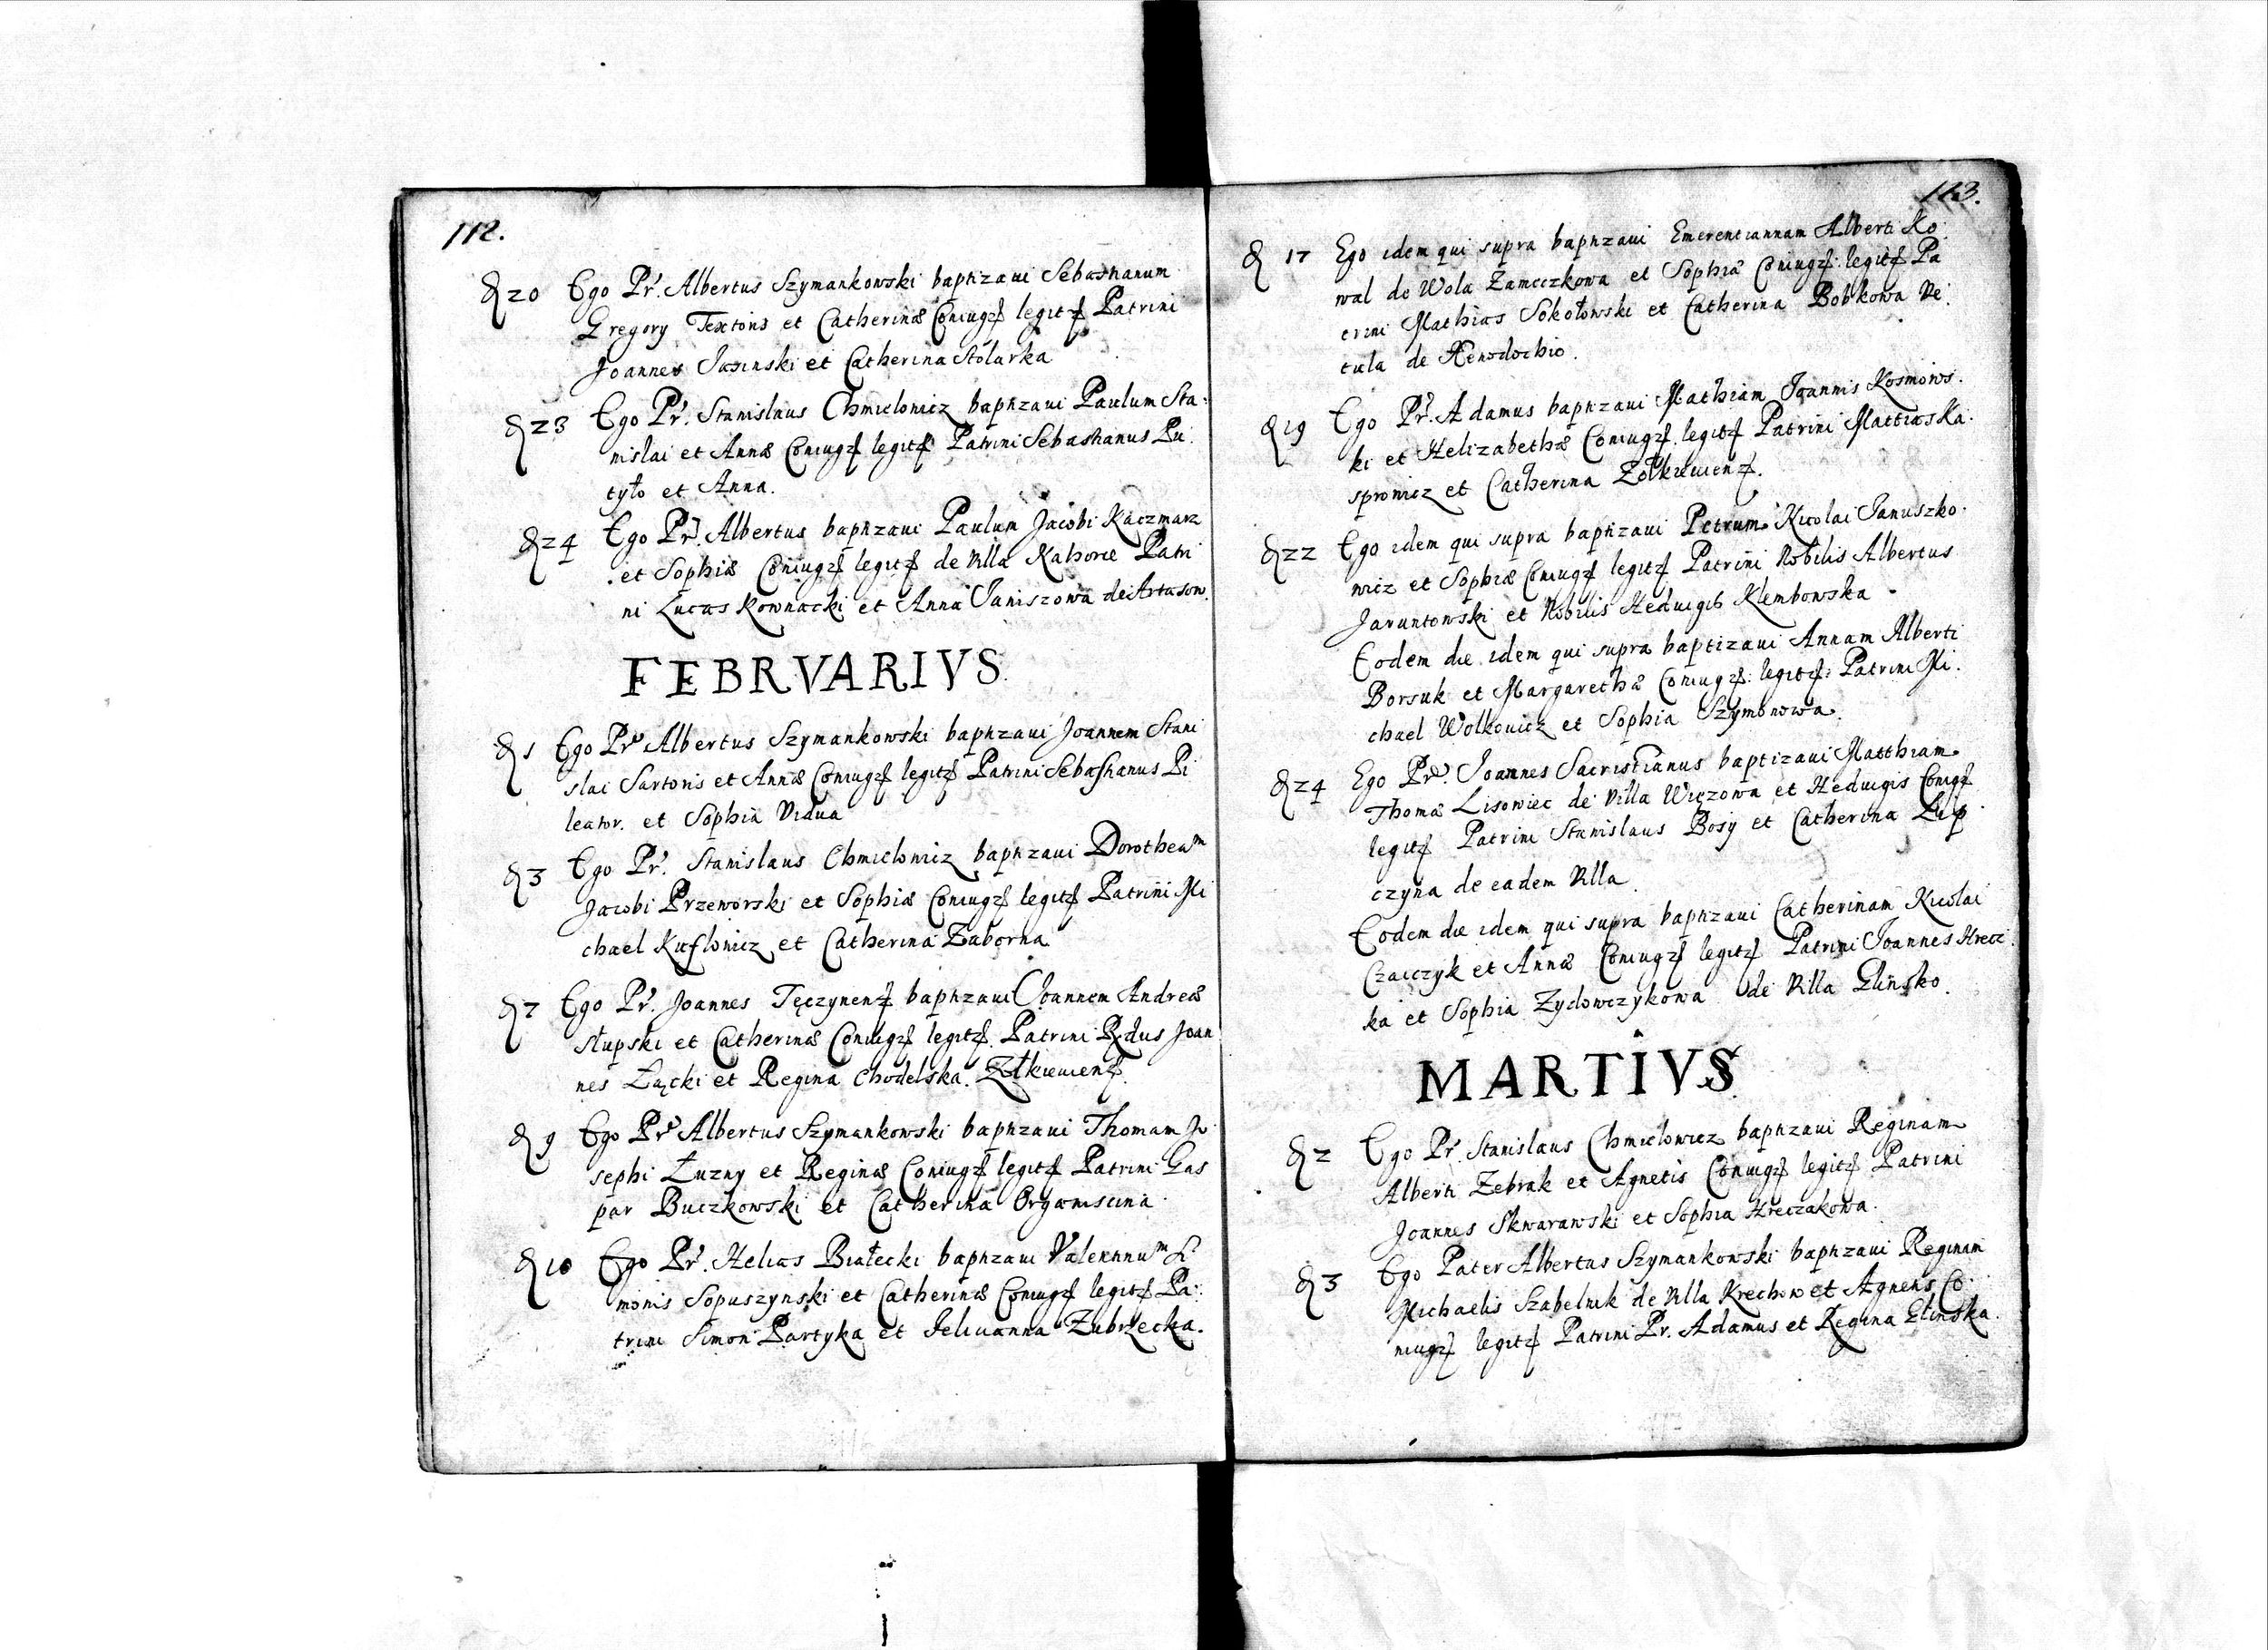 112.
D 20 Ego Pr. Albertus Szymankowski baptizaui Sebastianum
Gregory Textoris et Catherinæ Coniugz legitz Patrini
Joannes Jasinski et Catherina Stolarka
D 23 Ego Pr. Stanislaus Chmielowicz baptizaui Paulum Sta-
nislai et Annæ Coniugz legitz Patrini Sebastianus Pu
tyło et Anna.
D 24 Ego Pr. Albertus baptizaui Paulum Jacobi Kaczmarz
et Sophiæ Coniugz legitz de Villa Kahorce Patri
ni Lucas Kownacki et Anna Janiszowa de Artasow.
FEBRVARIVS.
D 1 Ego Pr. Albertus Szymankowski baptizaui Joannem Stani
slai Sartoris et Annæ Coniugz legitz Patrini Sebastianus Pi
leator. et Sophia Vidua
D 3 Ego Pr. Stanislaus Chmielowicz baptizaui Dorotheam
Jacobi Przeworski et Sophiæ Coniugz legitz Patrini Mi
chael et Catherina Zaborna
D 7 Ego Pr. Joannes Tęczynenz baptizaui Joannem Andreæ
Słupski et Catherinæ Coniugz legitz. Patrini Rdus Joan
nes Łącki et Regina Chodelska. Żłkiewienz.
D 9 Ego Pr. Albertus Szymankowski baptizaui Thomam Jo
sephi Łuzny et Reginæ Coniugz legitz Patrini Gas
par Buczkowski et Catherina Organiscina
D 10 Ego Pr. Helias Białecki baptizaui Valentinum Si
monis Sopuszynski et Catherinæ Coniugz legitz Pa:
trini Simon Partyka et Zubrzecka.
113.
D 17 Ego idem qui supra baptizaui Emerentiannam Alberti Ko
wal de Wola Zameczkowa et Sophiæ Coniugz: legitz Pa
trini Mathias Sokołowski et Catherina Bobkowa Ve
tula de Xenodochio.
D 19 Ego Pr. Adamus baptizaui Mathiam Joannis Kosmows.
ki et Helizabethæ Coniugz. legitz Patrini Mattias Ka.
sprowicz et Catherina Zołkiewienz.
D 22 Ego idem qui supra baptizaui Petrum Nicolai Januszko.
wicz et Sophiæ Coniugz legitz Patrini Nobilis Albertus
Jaruntowski et Nobilis Heduigis Klembowska
Eodem die idem qui supra baptizaui Annam Alberti
Borsuk et Margarethæ Coniugz: legitz: Patrini Mi.
chael Wolkouicz et Sophia Szymonowa.
D 24 Ego Pr. Joannes Sacristianus baptizaui Matthiam
Thomæ Lisowiec de Villa Więzowa et Heduigis Coniugz
legitz Patrini Stanislaus Bosy et Catherina Łup
czyna de eadem Villa.
Eodem die idem qui supra baptizaui Catherinam Nicolai
Czaiczyk et Annæ Coniugz legitz Patrini Joannes Hrecz
ka et Sophia Zydowczykowa de Villa Glinsko.
MARTIVS.
D 2 Ego Pr. Stanislaus Chmielowicz baptizaui Reginam
Alberti Zebrak et Agnetis Coniugz legitz Patrini
Joannes Skwarawski et Sophia Hreczakowa.
D 3 Ego Pater Albertus Szymankowski baptizaui Reginam
Michaelis Szabelnik de Villa Krechow et Agnetis Co
niugz legitz Patrini Pr. Adamus et Regina Glinska.